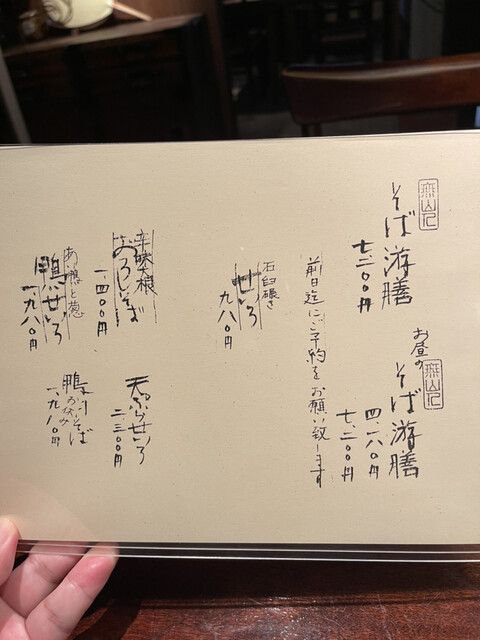 そば游膳
七.二〇〇円
お昼の
そば游膳
四.一八〇円
七.二〇〇円
前日迄にご予約をお願い致します
石臼碾き
せいろ
九八〇円
辛味大根
おろしそば
一.四〇〇円
天ぷらせいろ
二.三〇〇円
鴨せいろ
一.九八〇円
鴨
そば
一.九八〇円